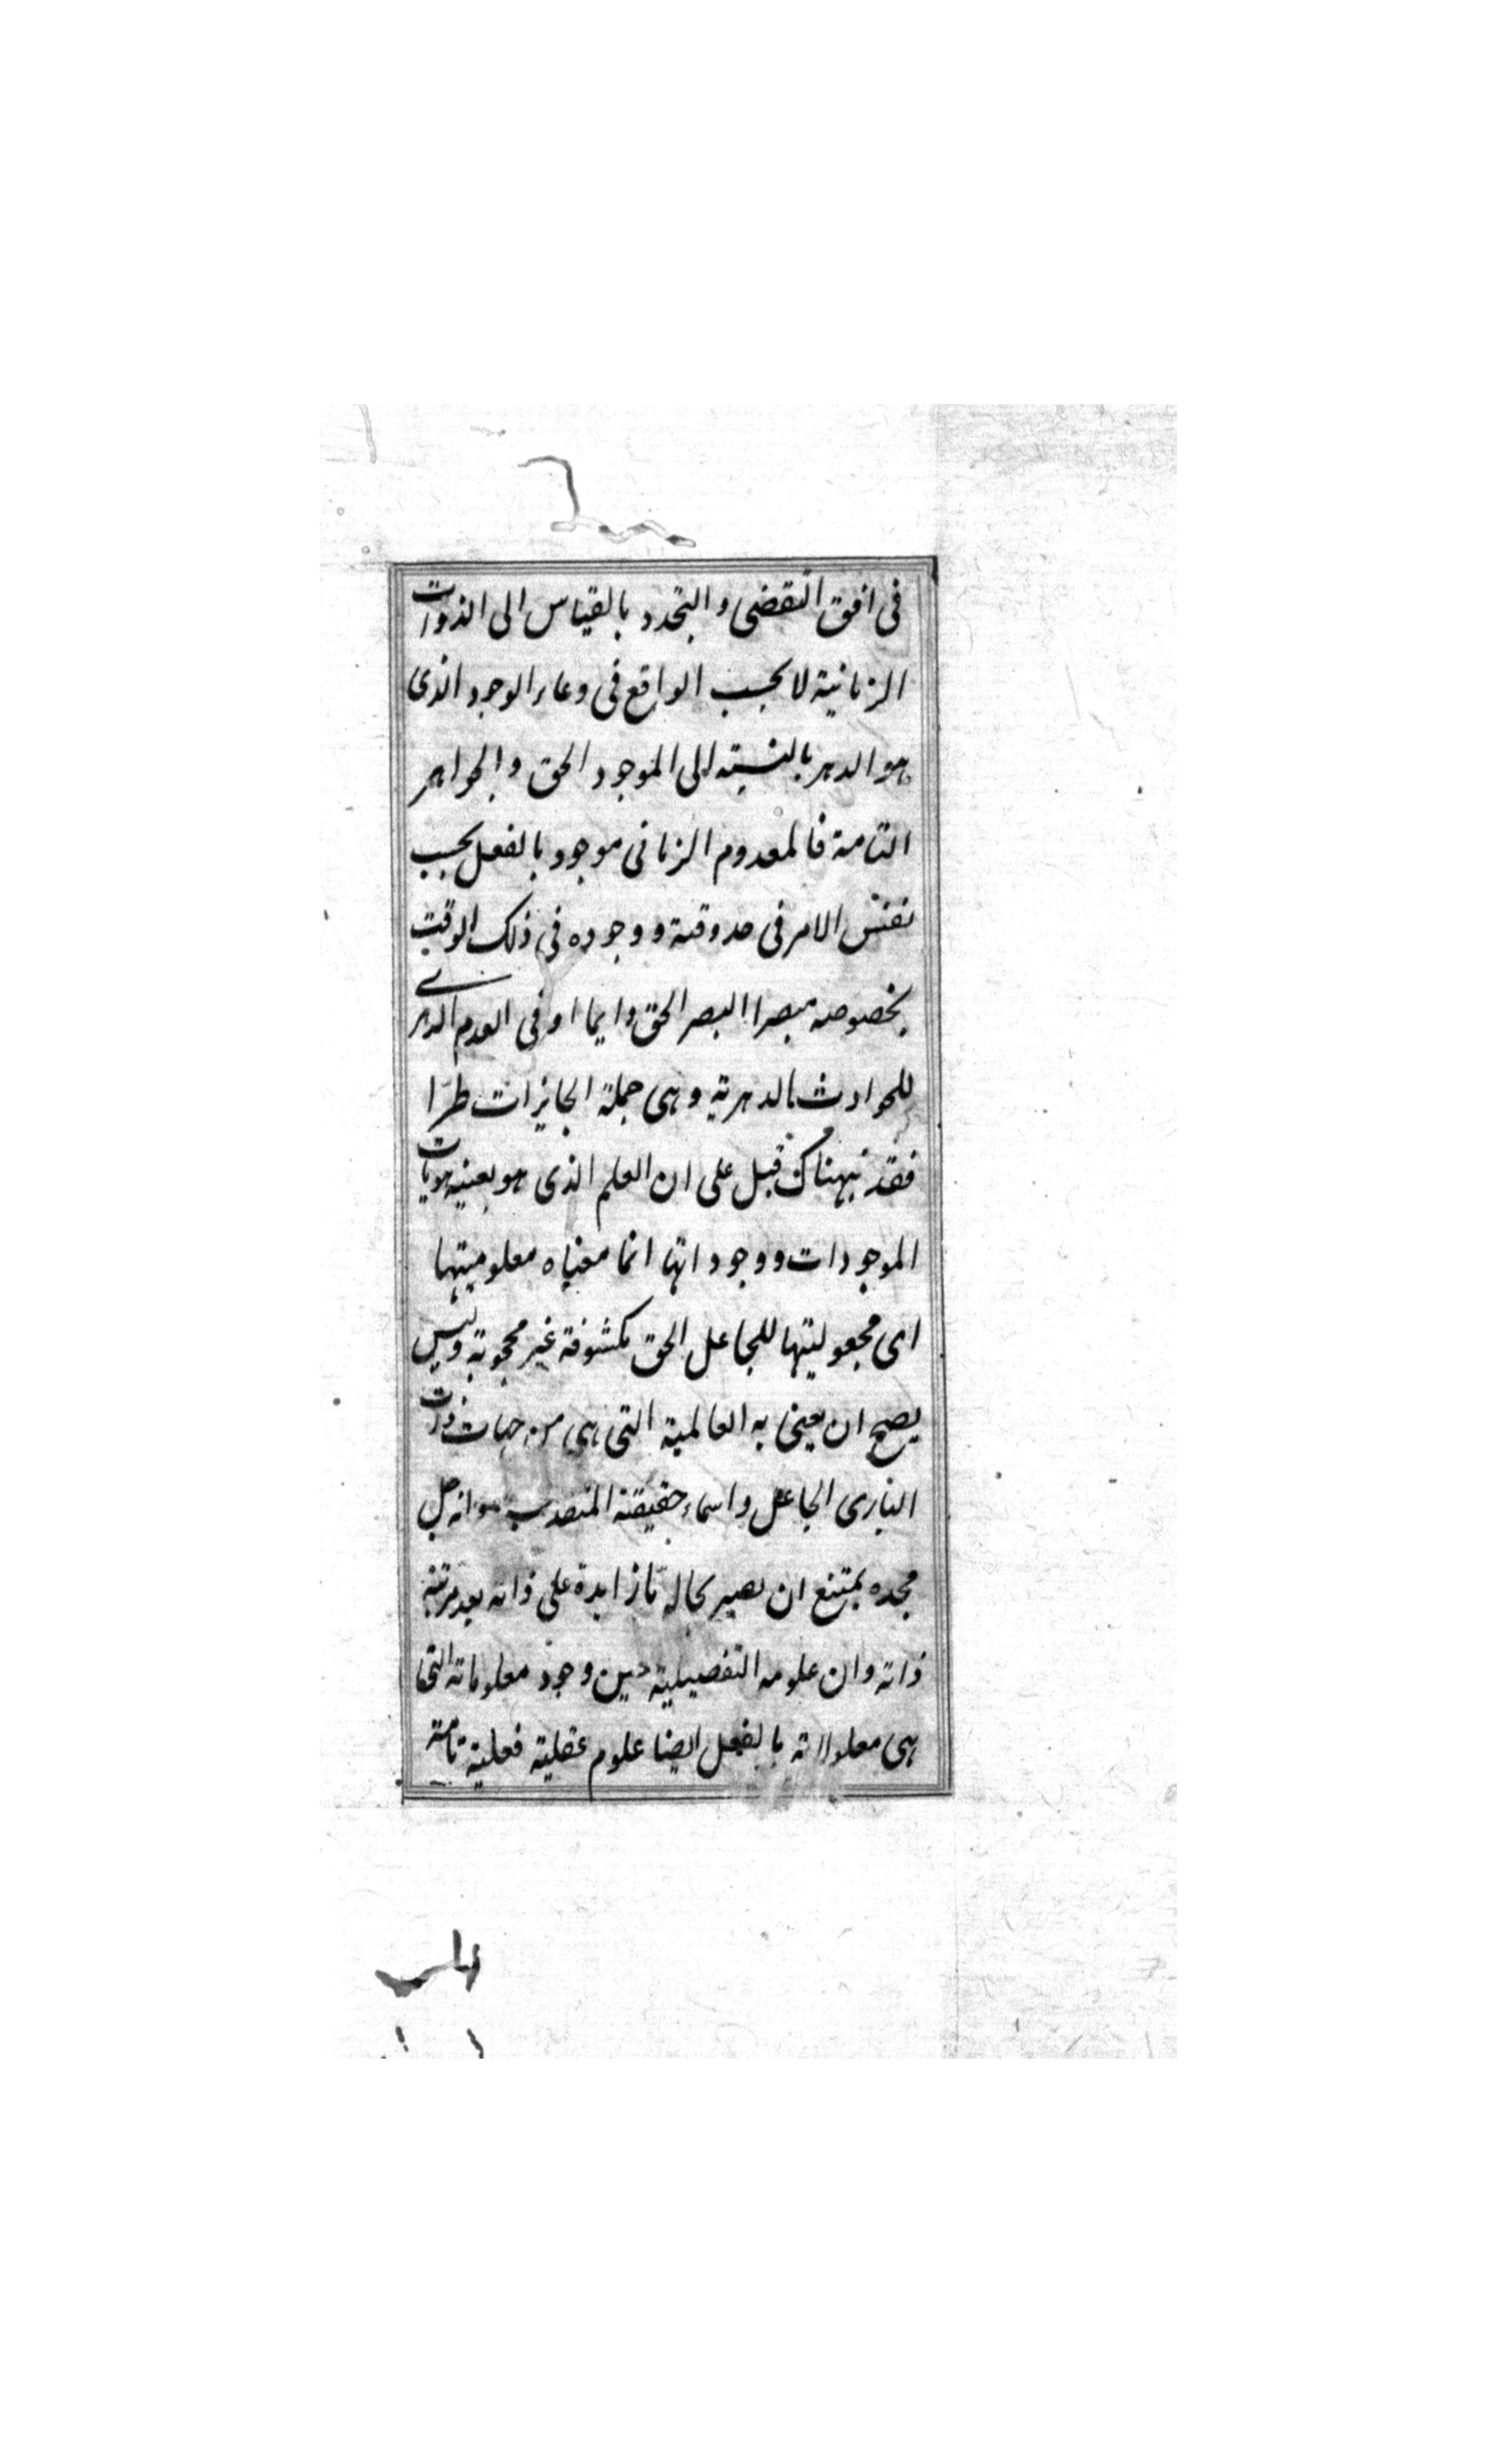 فى افق التقضى والتجدد بالقياس الى الذوات
الزمانية لا بحسب الواقع فى وعاء الوجود الذى
هو الدهر بالنسبته الى الموجود الحق والجواهر
التامة فالمعدوم الزمانى موجود بالفعل بحسب
نفس الامر فى حد وقته ووجوده فى ذلك الوقت
بخصوصه مبصرا البصر الحق دايما او فى العدم الدهرى
للحوادث الدهرية وهى جملة الجايزات طرّا
فقد نبهناك قبل على ان العلم الذى هو بعينه هويات
الموجودات ووجوداتها انما معناه معلوميتها
اى مجعوليتها للجاعل الحق مكشوفة غير محجوبة وليس
يصح ان يعنى به العالمية التى هى من جهات ذات
البارى الجاعل واسماء حقيقته انه جل
مجده يمتنع ان يصير بحاله مّا زايدة على ذاته بعد مرتبة
ذاته وان علومه التفصيلية حين وجود معلوماته التى
هى معلولاته بالفعل ايضا علوم عقلية فعلية تامة